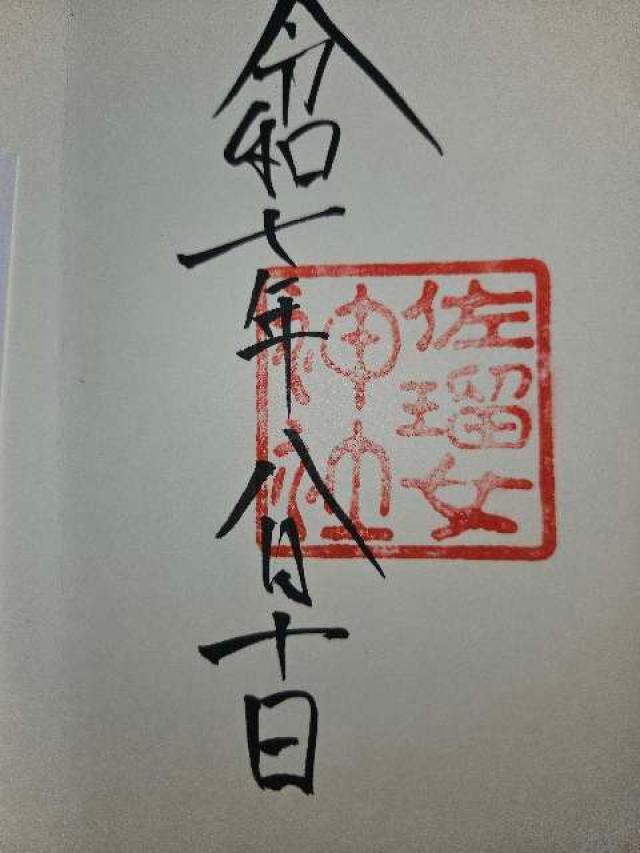 令和七年八月十日
佐瑠女
神社